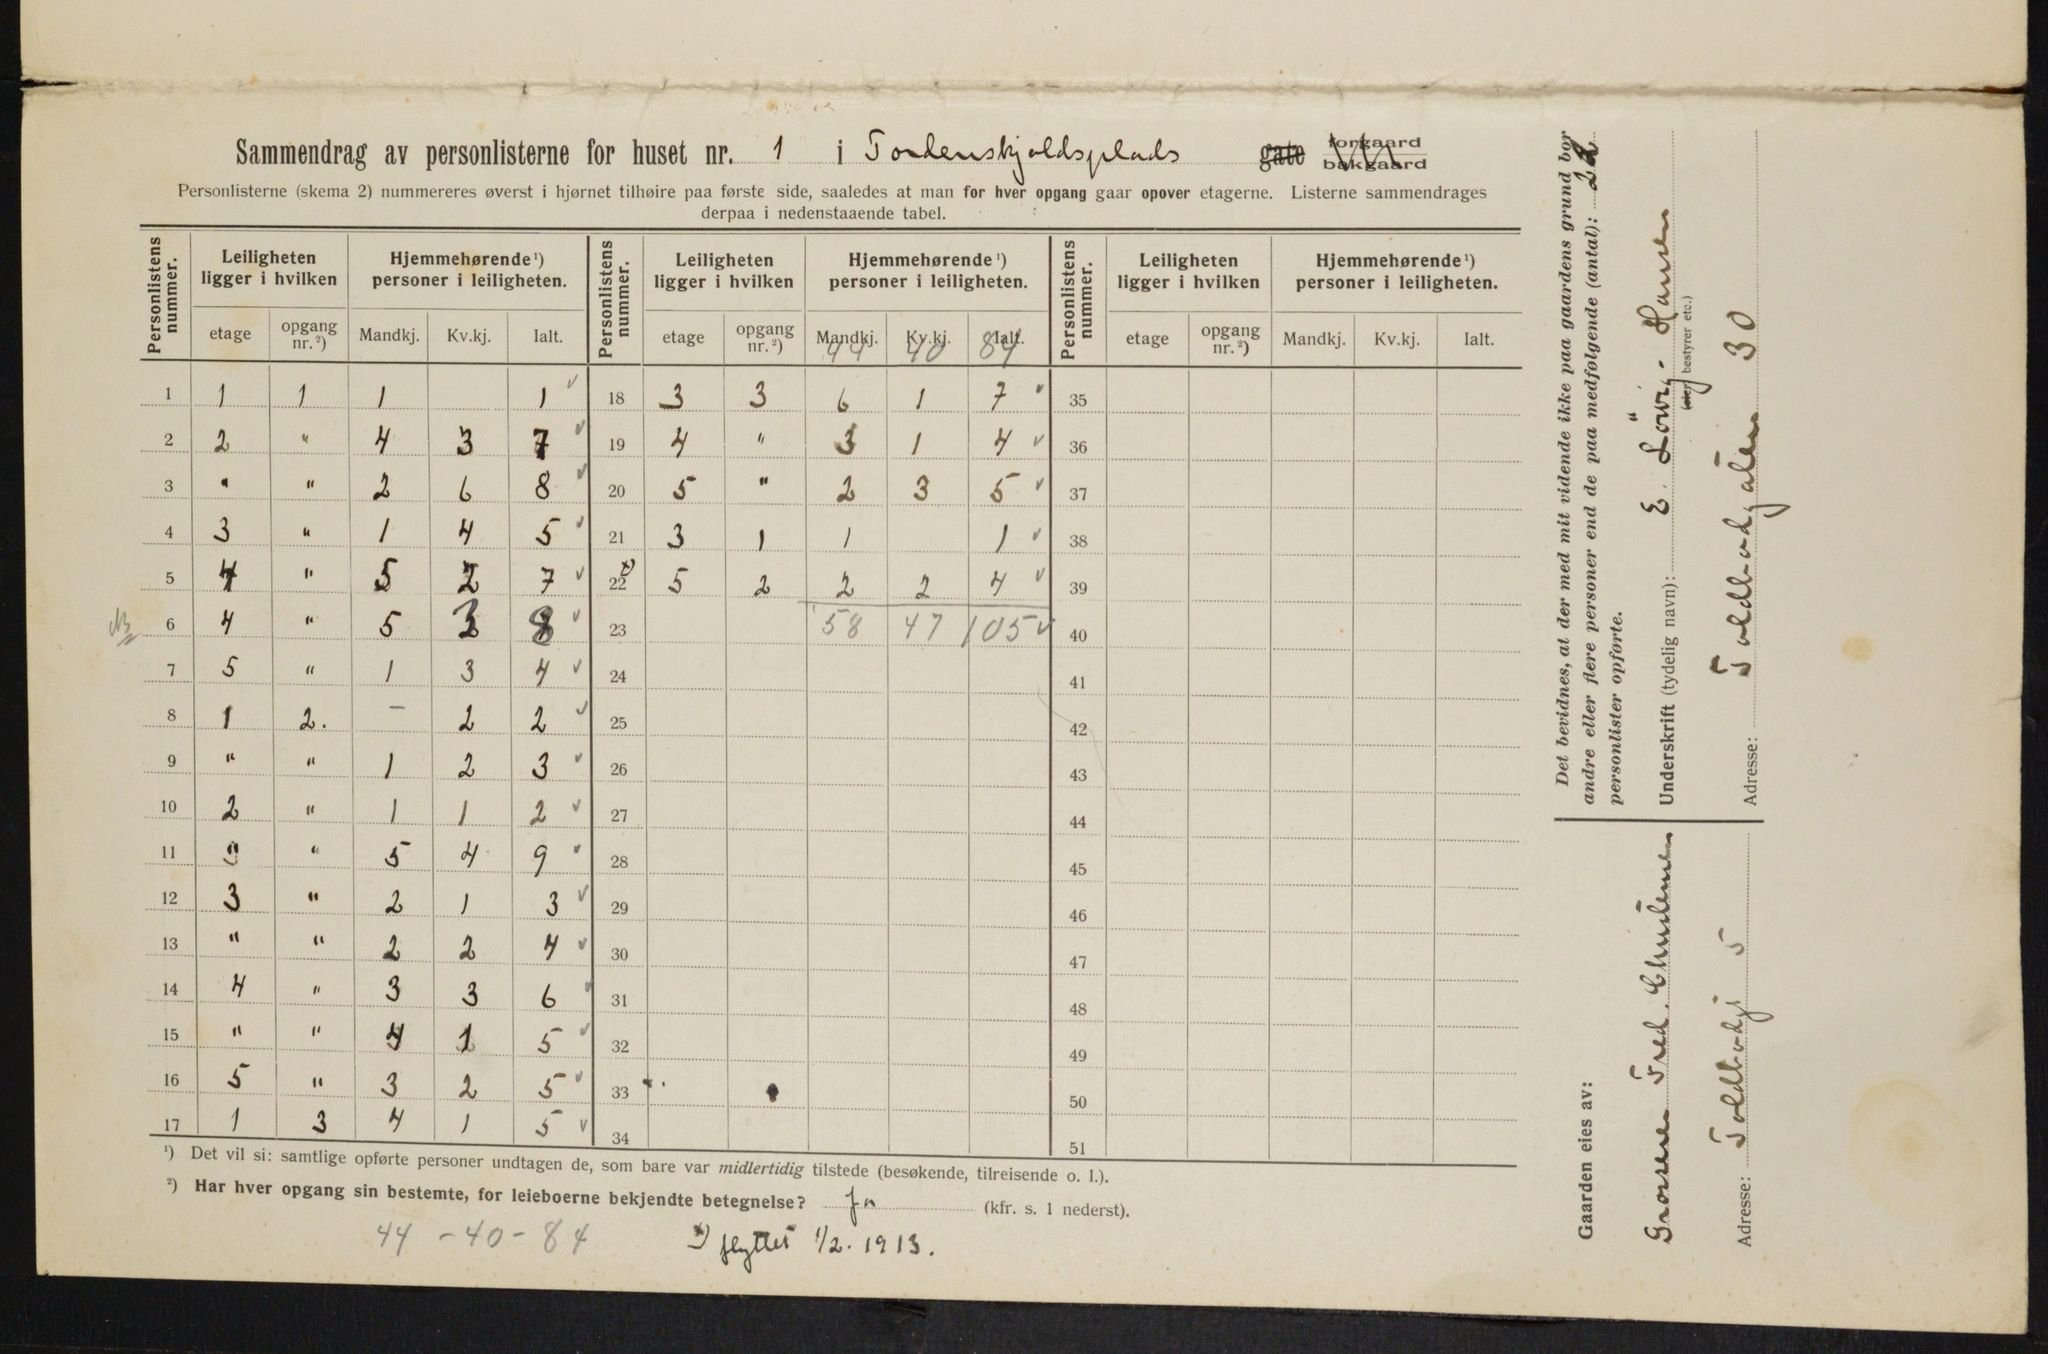 Sammendrag av personlisterne for huset nr. 1 i Tordenskjoldsplads gate forgaard bakgaard
Personlisterne (skema 2) nummereres øverst i hjørnet tilhøire paa første side, saaledes at man for hver opgang gaar opover etagerne. Listerne sammendrages
derpaa i nedenstaaende tabel.
Personlistens nummer. Leiligheten ligger i hvilken Hjemmehørende ¹) personer i leiligheten. Personlistens nummer. Leiligheten ligger i hvilken Hjemmehørende ¹) personer i leiligheten. Personlistens nummer. Leiligheten ligger i hvilken Hjemmehørende ¹) personer i leiligheten.
etage opgang nr. ²) Mandkj. Kv.kj. Ialt. etage opgang nr. ²) Mandkj. Kv.kj. Ialt. etage opgang nr. ²) Mandkj. Kv.kj. Ialt.
44 40 84
1 1 1 1 1 18 3 3 6 1 7 35
2 2 " 4 3 7 19 4 " 3 1 4 36
3 " " 2 6 8 20 5 " 2 3 5 37
4 3 " 1 4 5 21 3 1 1 1 38
5 4 " 5 2 7 22 x) 5 2 2 2 4 39
6 4 " 5 3 8 23 58 47 105 40
7 5 " 1 3 4 24 41
8 1 2. - 2 2 25 42
9 " " 1 2 3 26 43
10 2 " 1 1 2 27 44
11 3 " 5 4 9 28 45
12 3 " 2 1 3 29 46
13 " " 2 2 4 30 47
14 4 " 3 3 6 31 48
15 " " 4 1 5 32 49
16 5 " 3 2 5 33 50
17 1 3 4 1 5 34 51
¹) Det vil si: samtlige opførte personer undtagen de, som bare var midlertidig tilstede (besøkende, tilreisende o. l.).
²) Har hver opgang sin bestemte, for leieboerne bekjendte betegnelse? Ja (kfr. s. 1 nederst).
44 - 40 - 84
x) flyttet 1/2. 1913.
Det bevidnes, at der med mit vidende ikke paa gaardens grund bor
andre eller flere personer end de paa medfølgende (antal): 22
personlister opførte.
Underskrift (tydelig navn): E. Löwig-Hansen
(eier, bestyrer etc.)
Adresse: Toldbodgaten 30
Gaarden eies av:
Grosserer Fred. Christensen
Adresse: Toldbodg 5